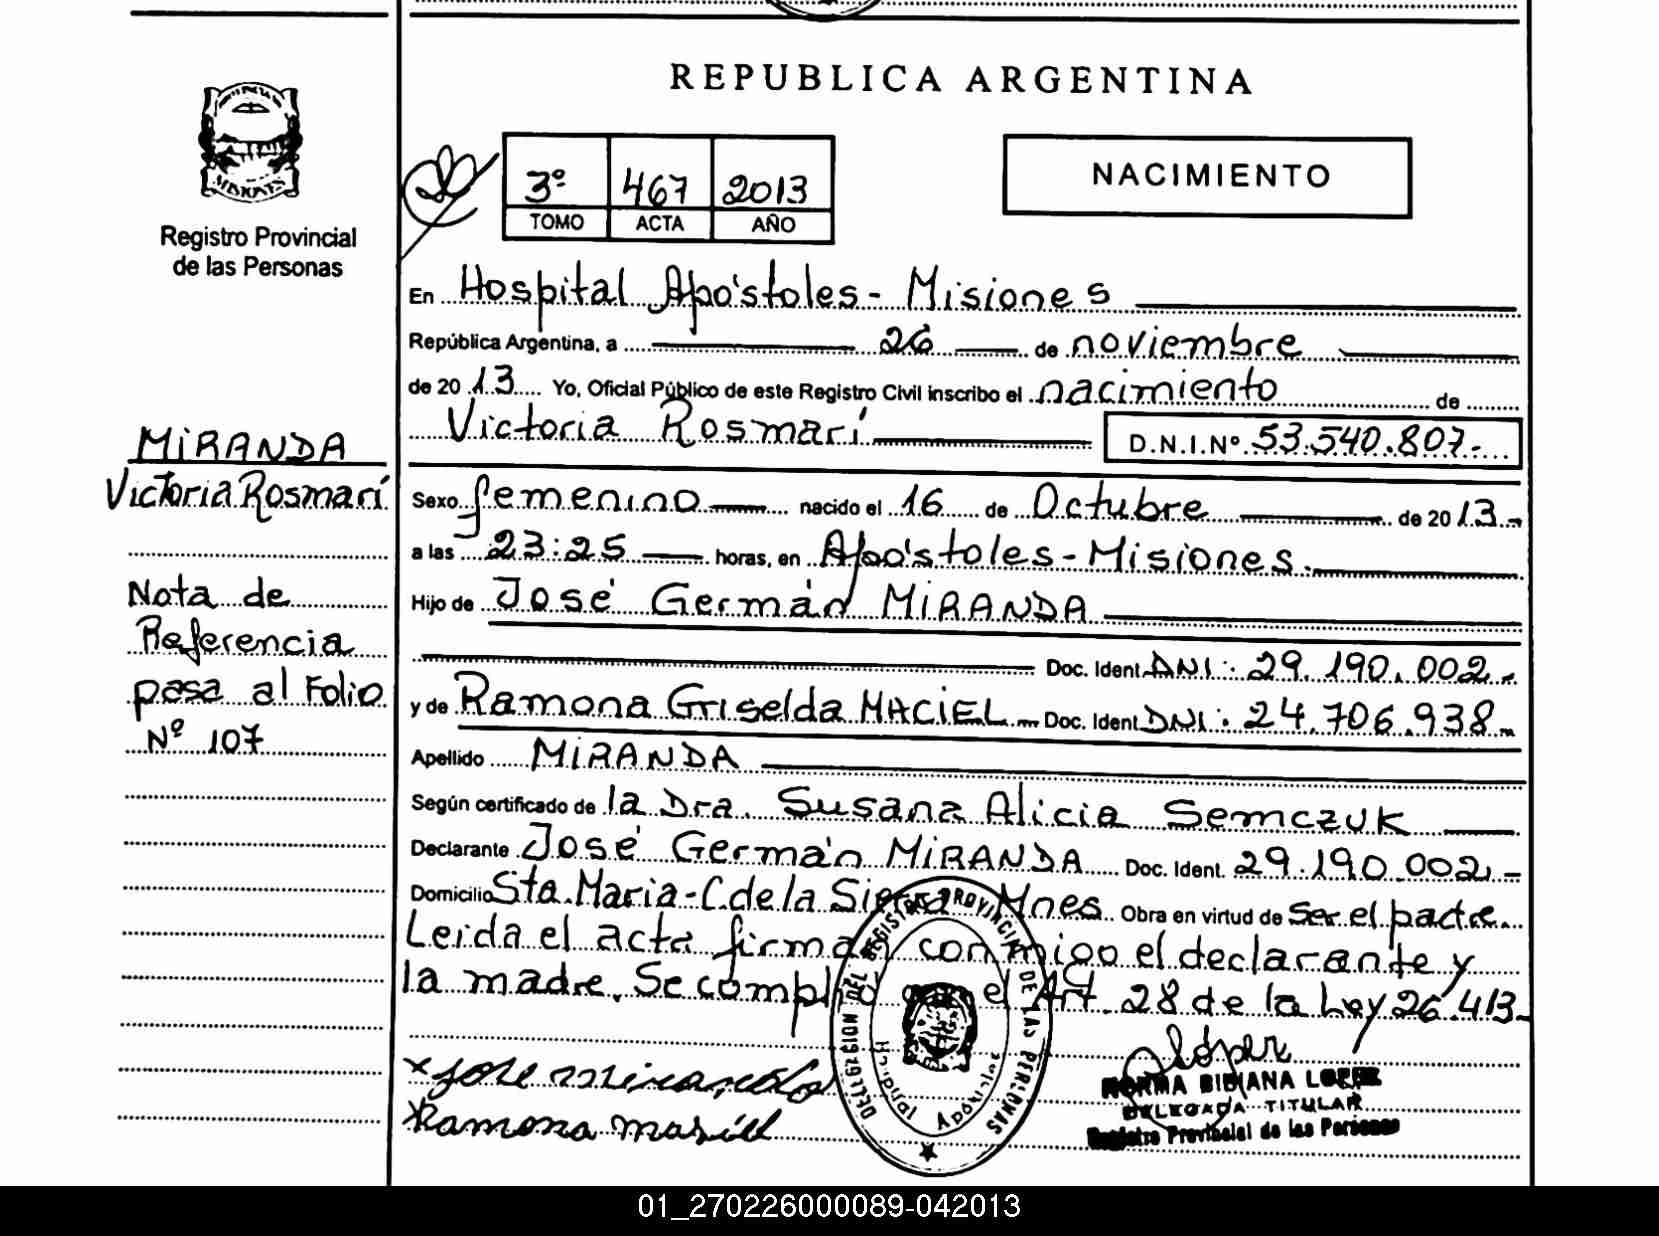 REPUBLICA ARGENTINA
MISIONES
Registro Provincial
de las Personas
3º 467 2013
TOMO ACTA AÑO
NACIMIENTO
En Hospital Apóstoles - Misiones
República Argentina, a 26 de noviembre
de 2013 Yo, Oficial Público de este Registro Civil inscribo el nacimiento de
Victoria Rosmarí D.N.I.Nº 53.540.807.-
Sexo femenino nacido el 16 de Octubre de 2013.-
a las 23:25 horas, en Apóstoles - Misiones.
Hijo de José Germán MIRANDA
Doc. Ident. DNI: 29.190.002.-
y de Ramona Griselda MACIEL.- Doc. Ident. DNI: 24.706.938.-
Apellido MIRANDA
Según certificado de la Dra. Susana Alicia Semczuk
Declarante José Germán MIRANDA Doc. Ident. 29.190.002.-
Domicilio Sta. Maria - C. de la Sierra Mnes. Obra en virtud de Ser el padre.
Leida el acta firman conmigo el declarante y
la madre. Se cumplió con el Art. 28 de la Ley 26.413.-
MIRANDA
Victoria Rosmarí
Nota de
Referencia
pasa al Folio
Nº 107
x jose miranda
x Ramona masiel
DELEGACION DEL REGISTRO PROVINCIAL DE LAS PERSONAS
Hospital Apóstoles
López
NORMA BIBIANA LOPEZ
DELEGADA TITULAR
Registro Provincial de las Personas
01_270226000089-042013